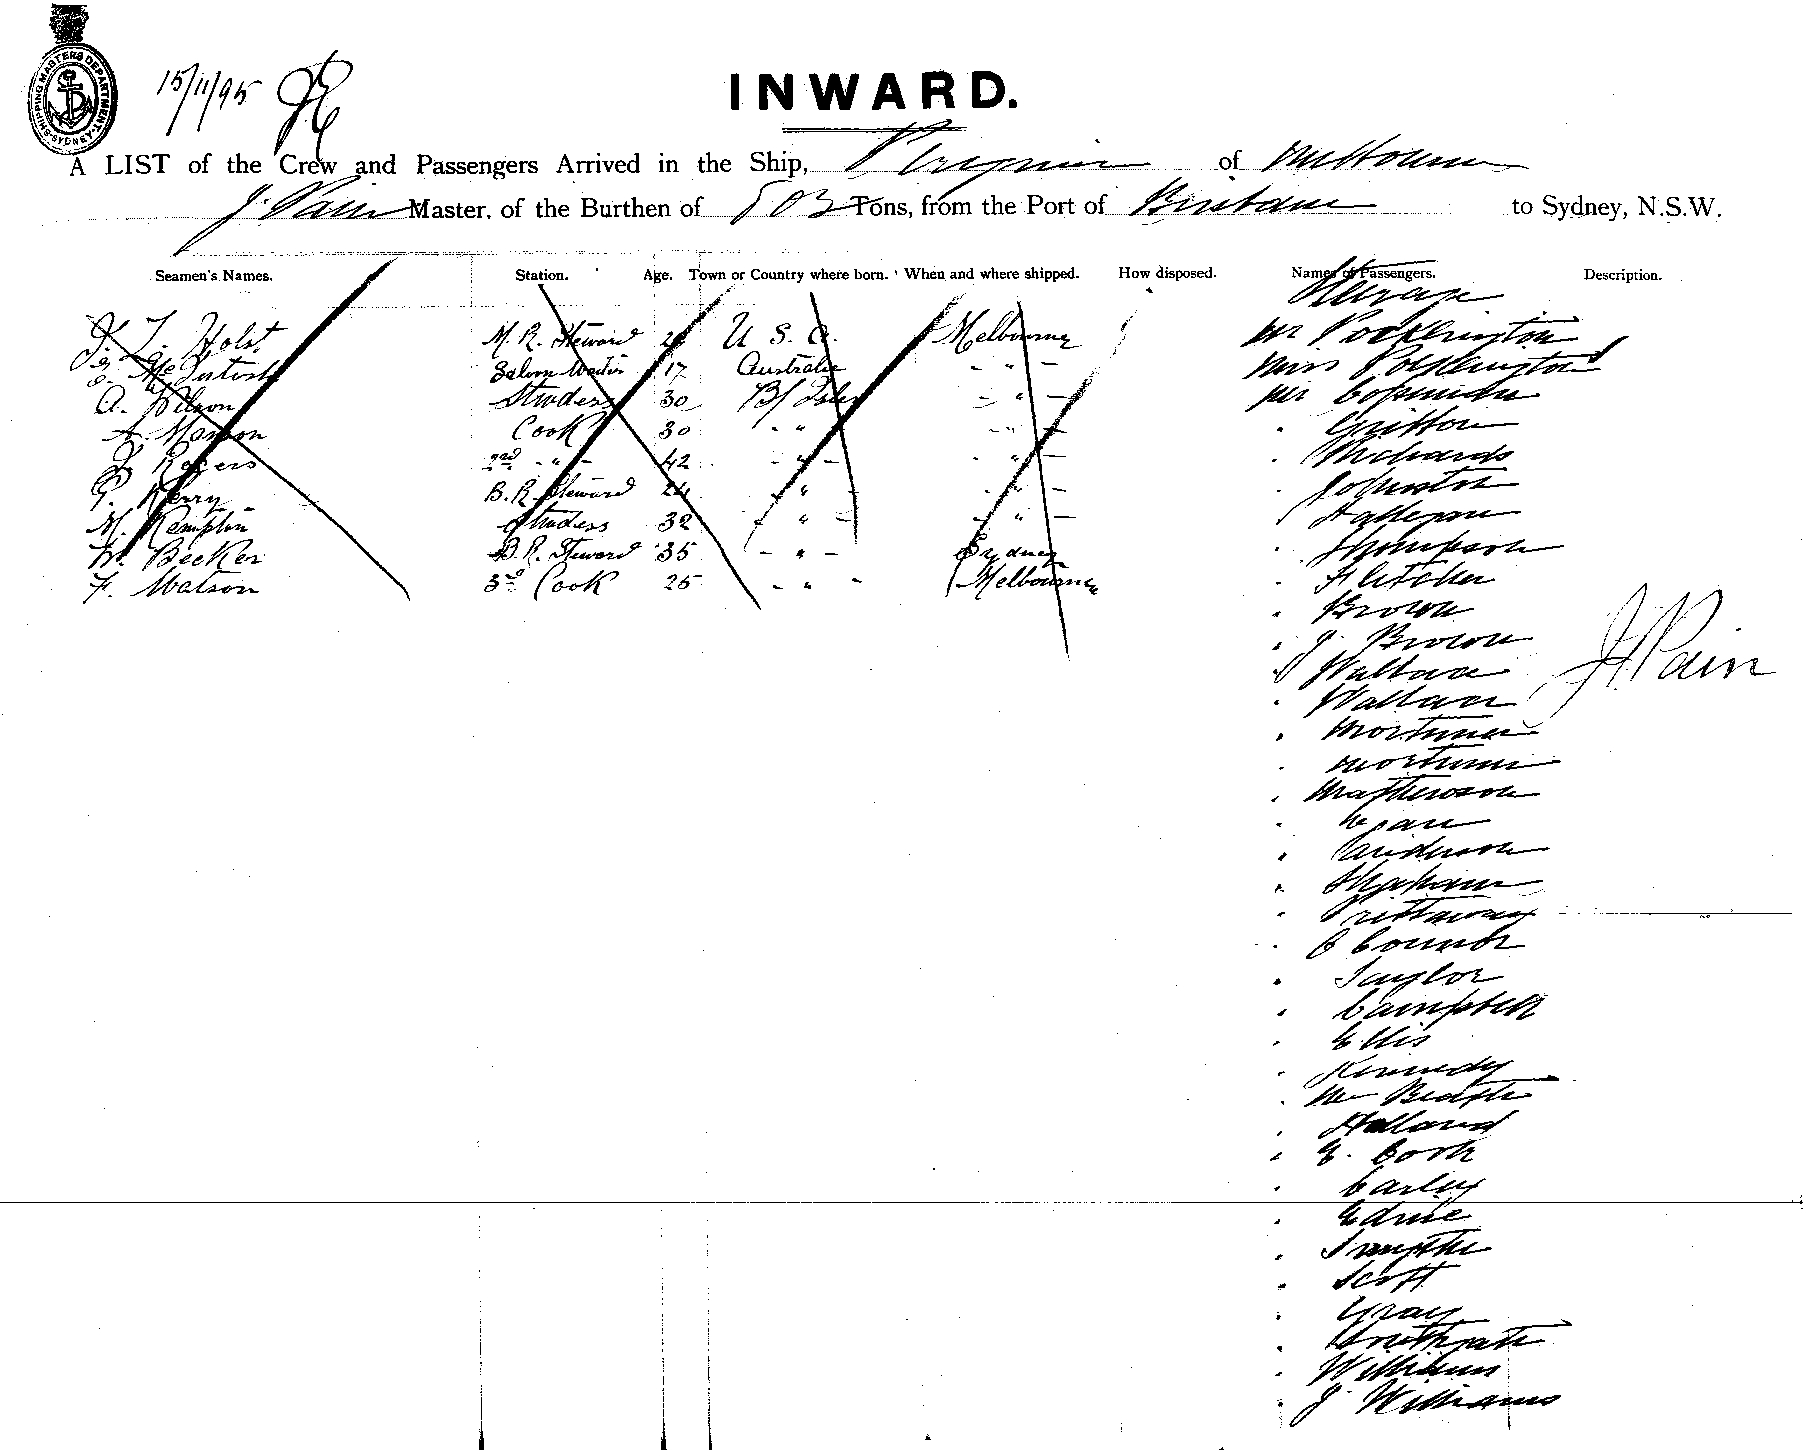 SHIPPING MASTERS DEPARTMENT SYDNEY
15/11/95
INWARD.
A LIST of the Crew and Passengers Arrived in the Ship, of Melbourne
J. Pain Master, of the Burthen of 503 Tons, from the Port of Brisbane to Sydney, N.S.W.
Seamen's Names. Station. Age. Town or Country where born. When and where shipped. How disposed. Names of Passengers. Description.
Steerage
Holst M. R. Steward U. S. A. Melbourne Mr Pocklington
McIntosh Saloon Waiter 17 Australia - " - Miss Pocklington
A. Wilson Studess 30 B/ Isles - " - Mr
A. 30 - " - - " - Gritton
Rogers 2nd - " - 42 - " - - " - Richards
Cook
G. Kerry B. R. Steward 24 - " - - " - Johnston
M. Kempton Studess 32 - " - - " -
W. Becker B. R. Steward 35 - " - Sydney Thompson
F. Watson 3rd Cook 25 - " - Melbourne Fletcher
" Brown
" J. Brown
" Wallace
" Wallace
J Pain
" Mortimer
" Mortimer
" Mathewson
"
" Anderson
" Graham
"
" O Connor
" Taylor
" Campbell
" Ellis
" Kennedy
" Mc Beath
" Holland
" E. Cook
" Carley
"
" Smythe
" Scott
" Gray
"
" Williams
" J. Williams